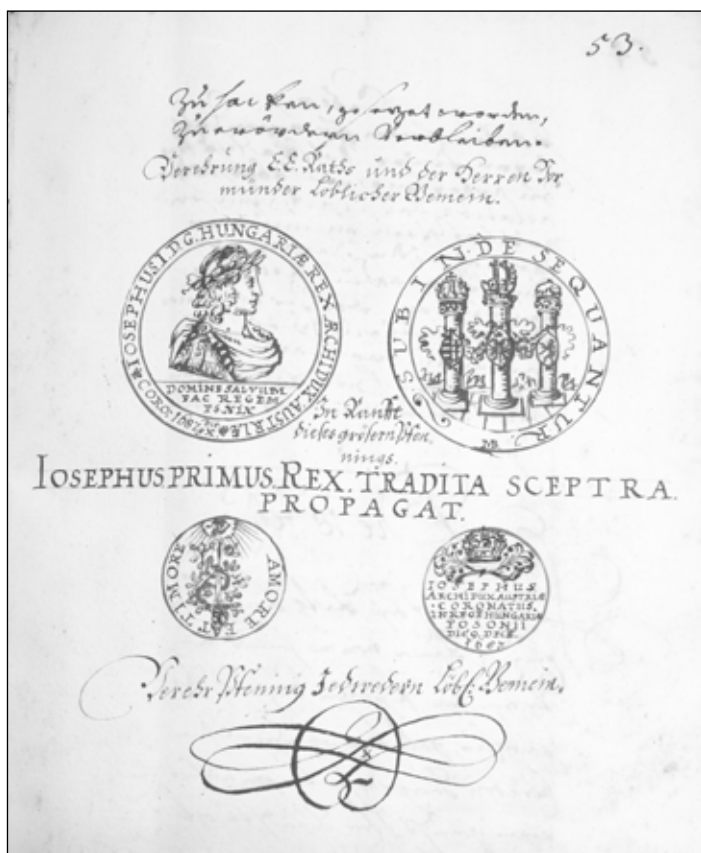 53.
Zu
worden,
Zu Verbleiben.
Verehrung E.E. Raths und der Herren Vor
münder Löblicher Gemein.
IOSEPHUS I D.G. HUNGARIÆ REX ARCHIDUX AUSTRIÆ
CORO: 1687
DOMINE SALVUM
FAC REGEM
PS XIX
SUBINDE SEQUANTUR.
In Ranfft
dieses grösern Pfen
nings.
IOSEPHUS PRIMUS REX. TRADITA SCEPTRA.
PROPAGAT.
AMORE ET TIMORE
IOSEPHUS
ARCHIDUX AUSTRIÆ
CORONATUS.
IN REGE HUNGARIÆ
POSONII
1687
Verehr Pfening Löbl: Gemein.